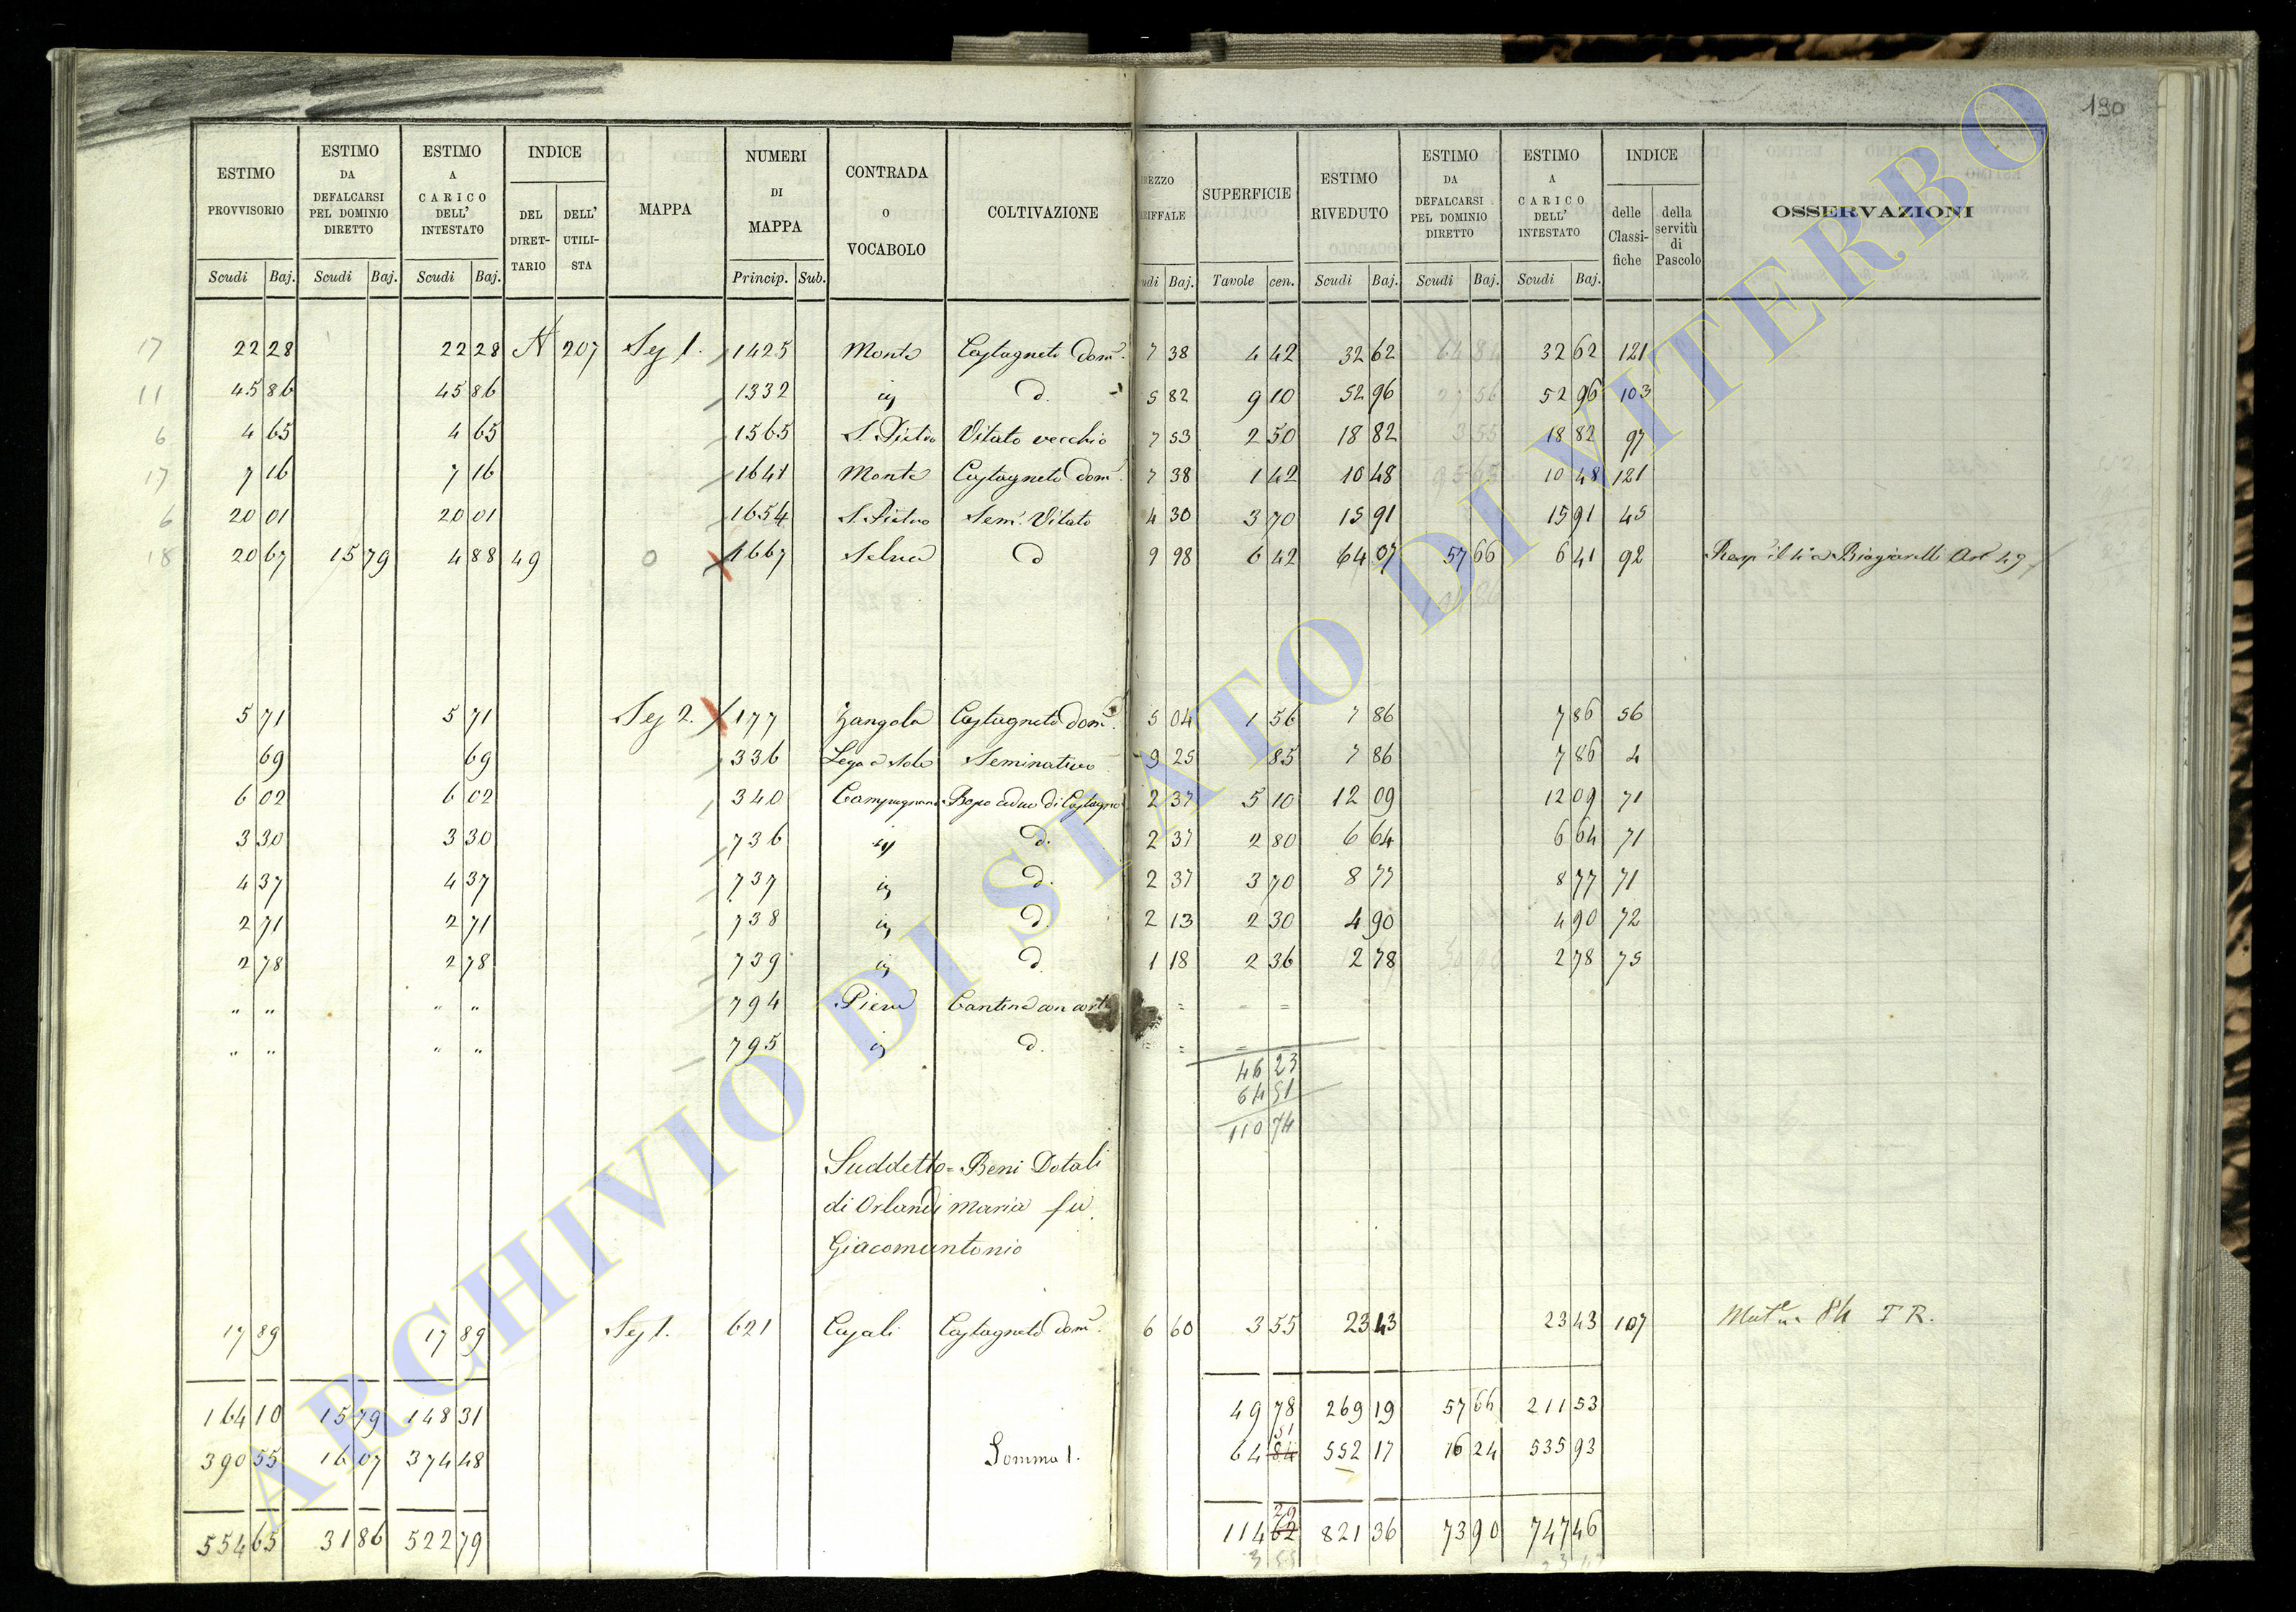 190
ESTIMO PROVVISORIO | ESTIMO DA DEFALCARSI PEL DOMINIO DIRETTO | ESTIMO A CARICO DELL' INTESTATO | INDICE DEL DIRET-TARIO | DELL' UTILI-STA | MAPPA | NUMERI DI MAPPA | CONTRADA O VOCABOLO | COLTIVAZIONE | REZZO RIFFALE | SUPERFICIE | ESTIMO RIVEDUTO | ESTIMO DA DEFALCARSI PEL DOMINIO DIRETTO | ESTIMO A CARICO DELL' INTESTATO | INDICE delle Classi-fiche | della servitù di Pascolo | OSSERVAZIONI
Scudi | Baj. | Scudi | Baj. | Scudi | Baj. | Princip. | Sub. | udi | Baj. | Tavole | cen. | Scudi | Baj. | Scudi | Baj. | Scudi | Baj.
17 | 22 28 | 22 28 | A | 207 | Sez 1. | 1425 | Monte | Castagneto dom. | 7 38 | 4 42 | 32 62 | 32 62 | 121
11 | 45 86 | 45 86 | 1332 | ivi | d. | 5 82 | 9 10 | 52 96 | 52 96 | 103
6 | 4 65 | 4 65 | 1565 | S. Pietro | Vitato vecchio | 7 53 | 2 50 | 18 82 | 18 82 | 97
17 | 7 16 | 7 16 | 1641 | Monte | Castagneto dom. | 7 38 | 1 42 | 10 48 | 10 48 | 121
6 | 20 01 | 20 01 | 1654 | S. Pietro | Sem. Vitato | 4 30 | 3 70 | 15 91 | 15 91 | 45
18 | 20 67 | 15 79 | 4 88 | 49 | 0 | 1667 | Selva | d | 9 98 | 6 42 | 64 07 | 57 66 | 6 41 | 92 | Biagiarelli Art 49
5 71 | 5 71 | Sez 2. | 177 | Zangola | Castagneto dom. | 5 04 | 1 56 | 7 86 | 7 86 | 56
69 | 69 | 336 | Seminativo | 9 25 | 85 | 7 86 | 7 86 | 4
6 02 | 6 02 | 340 | Bosco ceduo di Castagno | 2 37 | 5 10 | 12 09 | 12 09 | 71
3 30 | 3 30 | 736 | ivi | d. | 2 37 | 2 80 | 6 64 | 6 64 | 71
4 37 | 4 37 | 737 | ivi | d. | 2 37 | 3 70 | 8 77 | 8 77 | 71
2 71 | 2 71 | 738 | ivi | d. | 2 13 | 2 30 | 4 90 | 4 90 | 72
2 78 | 2 78 | 739 | ivi | d. | 1 18 | 2 36 | 2 78 | 2 78 | 75
" " | " " | 794 | Cantina con corte | = | = =
" " | " " | 795 | ivi | d. | = = | = =
46 23
64 51
110 74
Suddetto = Beni Dotali
di Orlandi Maria fu
Giacomantonio
17 89 | 17 89 | Sez 1. | 621 | Casali | Castagneto dom. | 6 60 | 3 55 | 23 43 | 23 43 | 107 | 84 I R.
164 10 | 15 79 | 148 31 | 49 78 | 269 19 | 57 66 | 211 53
51
390 55 | 16 07 | 374 48 | Somma 1. | 64 84 | 552 17 | 16 24 | 535 93
29
554 65 | 31 86 | 522 79 | 114 62 | 821 36 | 73 90 | 747 46
3 55
ARCHIVIO DI STATO DI VITERBO